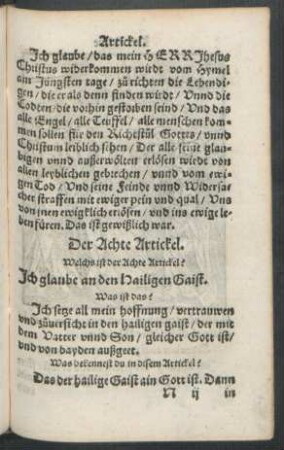 Artickel.
Ich glaube/das mein HERR Jhesus
Christus widerkommen wirdt vom Hymel
am Jüngsten tage/zů richten die Lebendi-
gen/die er als denn finden wirdt/Vnnd die
Todten/die vorhin gestorben seind/Vnd das
alle Engel/alle Teuffel/alle menschen kom-
men sollen für den Richestůl Gottes/vnnd
Christum leiblich sehen/Der alle seine glau-
bigen vnnd außerwölten erlösen wirdt von
allen leyblichen gebrechen/vnnd vom ewi-
gen Tod/Vnd seine Feinde vnnd Widersa-
cher straffen mit ewiger pein vnd qual/Vns
von jnen ewigklich erlösen/vnd ins ewige le-
ben füren. Das ist gewißlich war.
Der Achte Artickel.
Welchs ist der Achte Artickel?
Ich glaube an den Hailigen Gaist.
Was ist das?
Ich setze all mein hoffnung/vertrauwen
vnd zůuersicht in den hailigen gaist/der mit
dem Vatter vnnd Son/gleicher Gott ist/
vnd von bayden außgeet.
Was bekennest du in disem Artickel?
Das der hailige Gaist ain Gott ist. Dann
N ij in